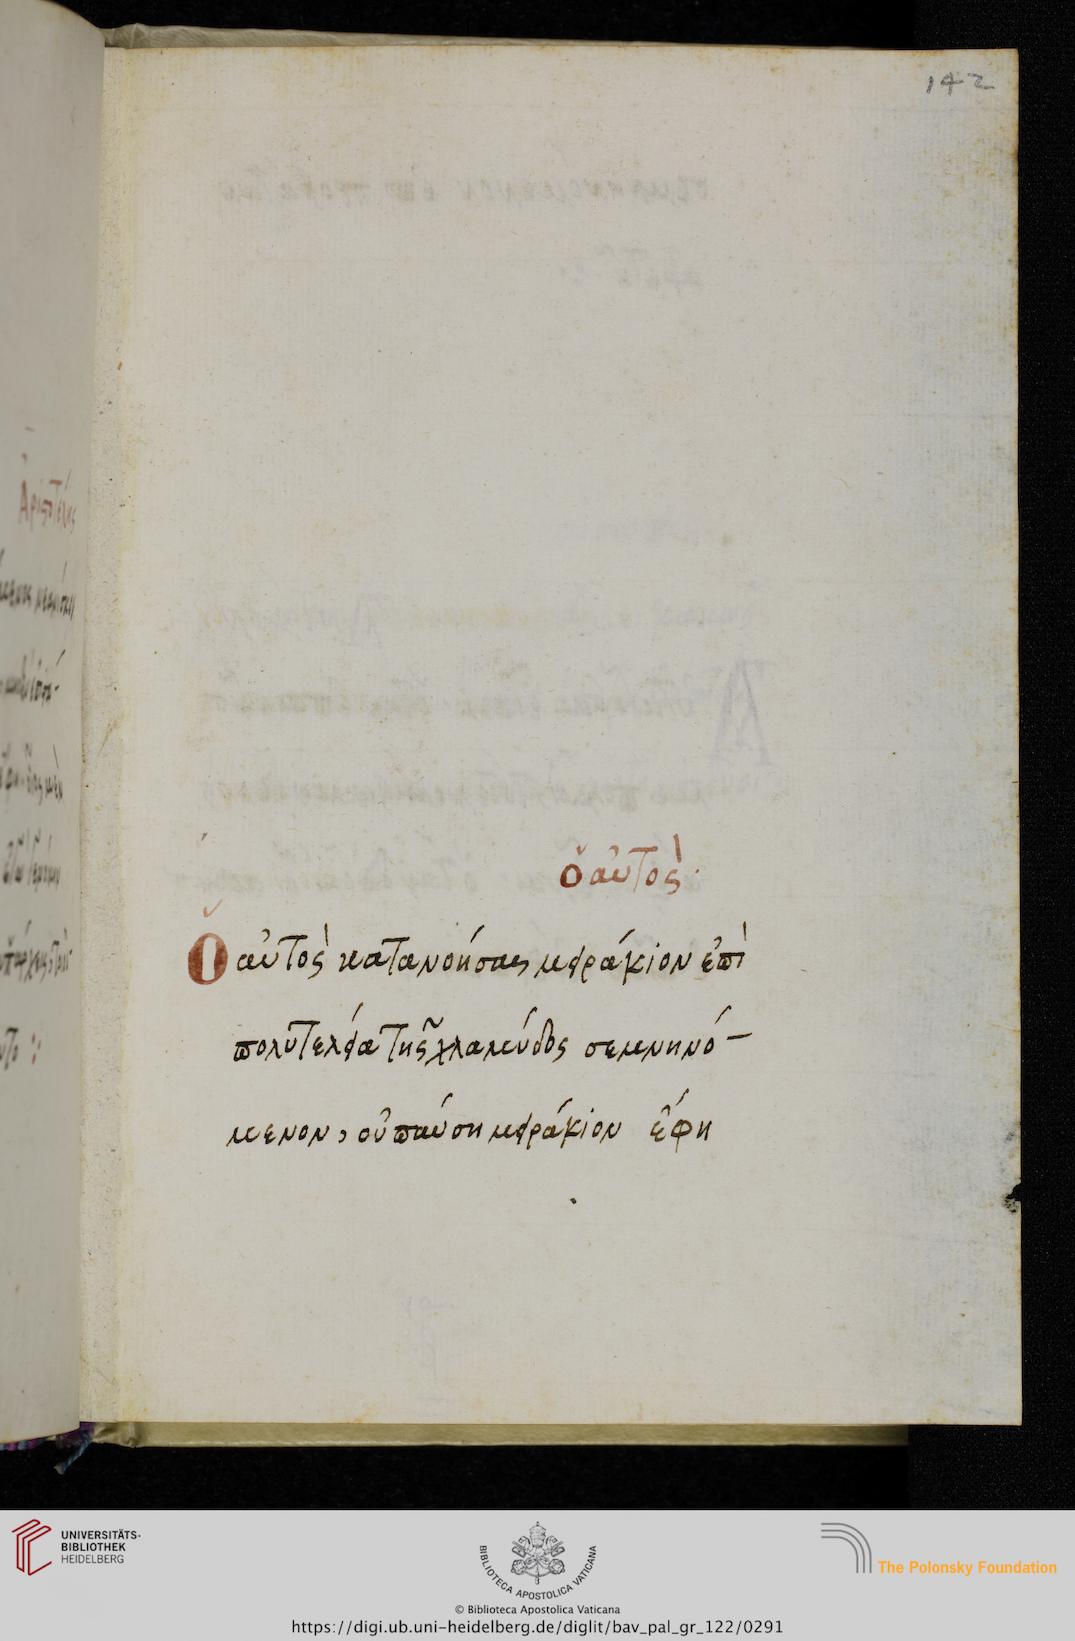 142
ὁ αὐτὸς
Ὁ αὐτὸς κατανοήσας μειράκιον ἐπὶ
πολυτελεία τῆς χλαμύδος σεμνηνό-
μενον, οὐ παύση μειράκιον ἔφη
Ἀριστοτέλης
UNIVERSITÄTS-
BIBLIOTHEK
HEIDELBERG
BIBLIOTECA APOSTOLICA VATICANA
The Polonsky Foundation
© Biblioteca Apostolica Vaticana
https://digi.ub.uni-heidelberg.de/diglit/bav_pal_gr_122/0291